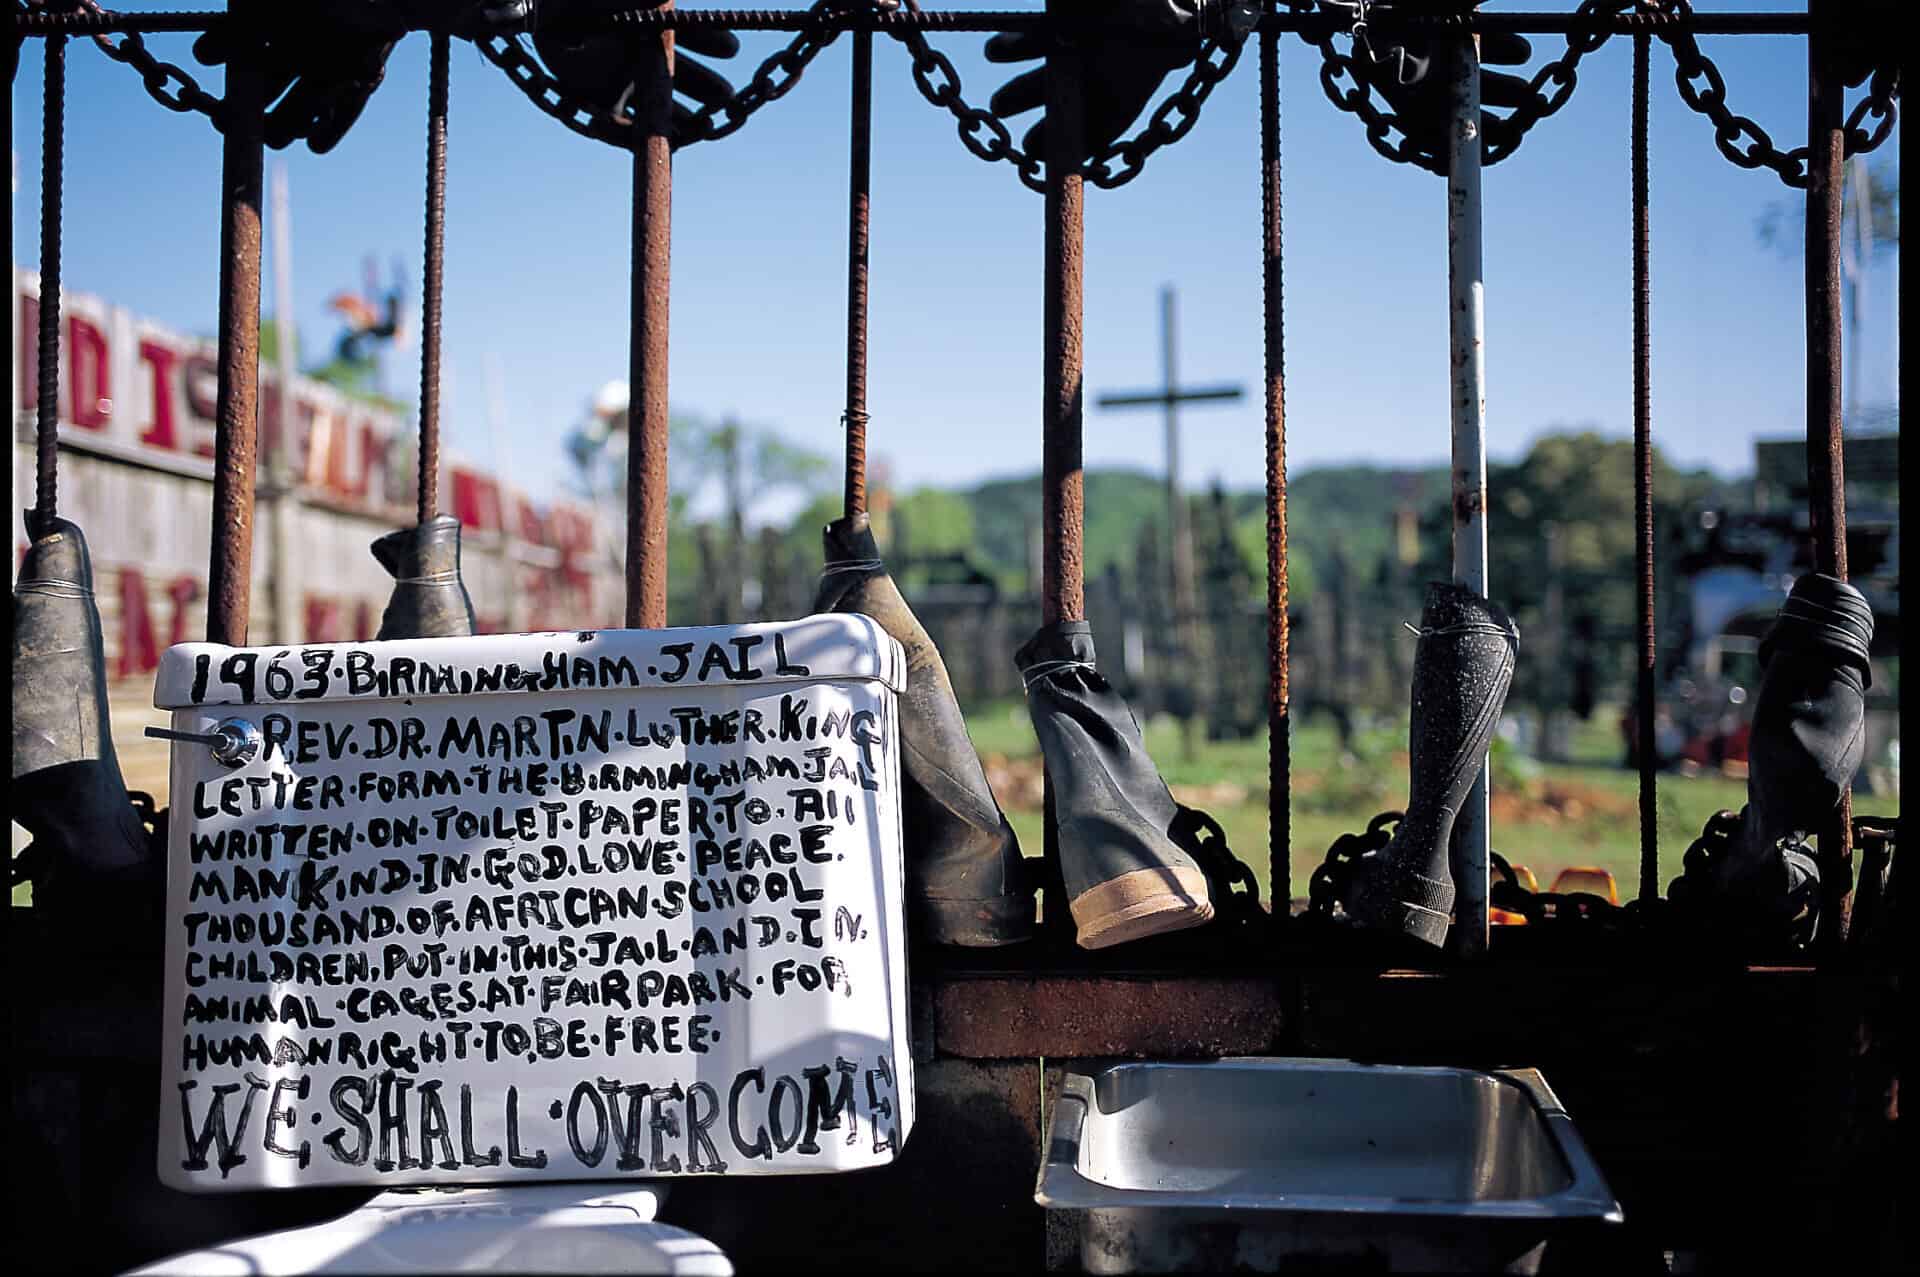 1963·BIRMINGHAM·JAIL
REV. DR. MARTIN·LUTHER·KING
LETTER·FORM·THE·BIRMINGHAM·JAIL
WRITTEN·ON·TOILET·PAPER·TO·All
MANKIND·IN·GOD.LOVE·PEACE.
THOUSAND.OF.AFRICAN·SCHOOL
CHILDREN,PUT·IN·THIS·JAIL·AND·IN.
ANIMAL·CAGES.AT·FAIR PARK·FOR
HUMAN RIGHT·TO.BE·FREE·
WE·SHALL·OVERCOME